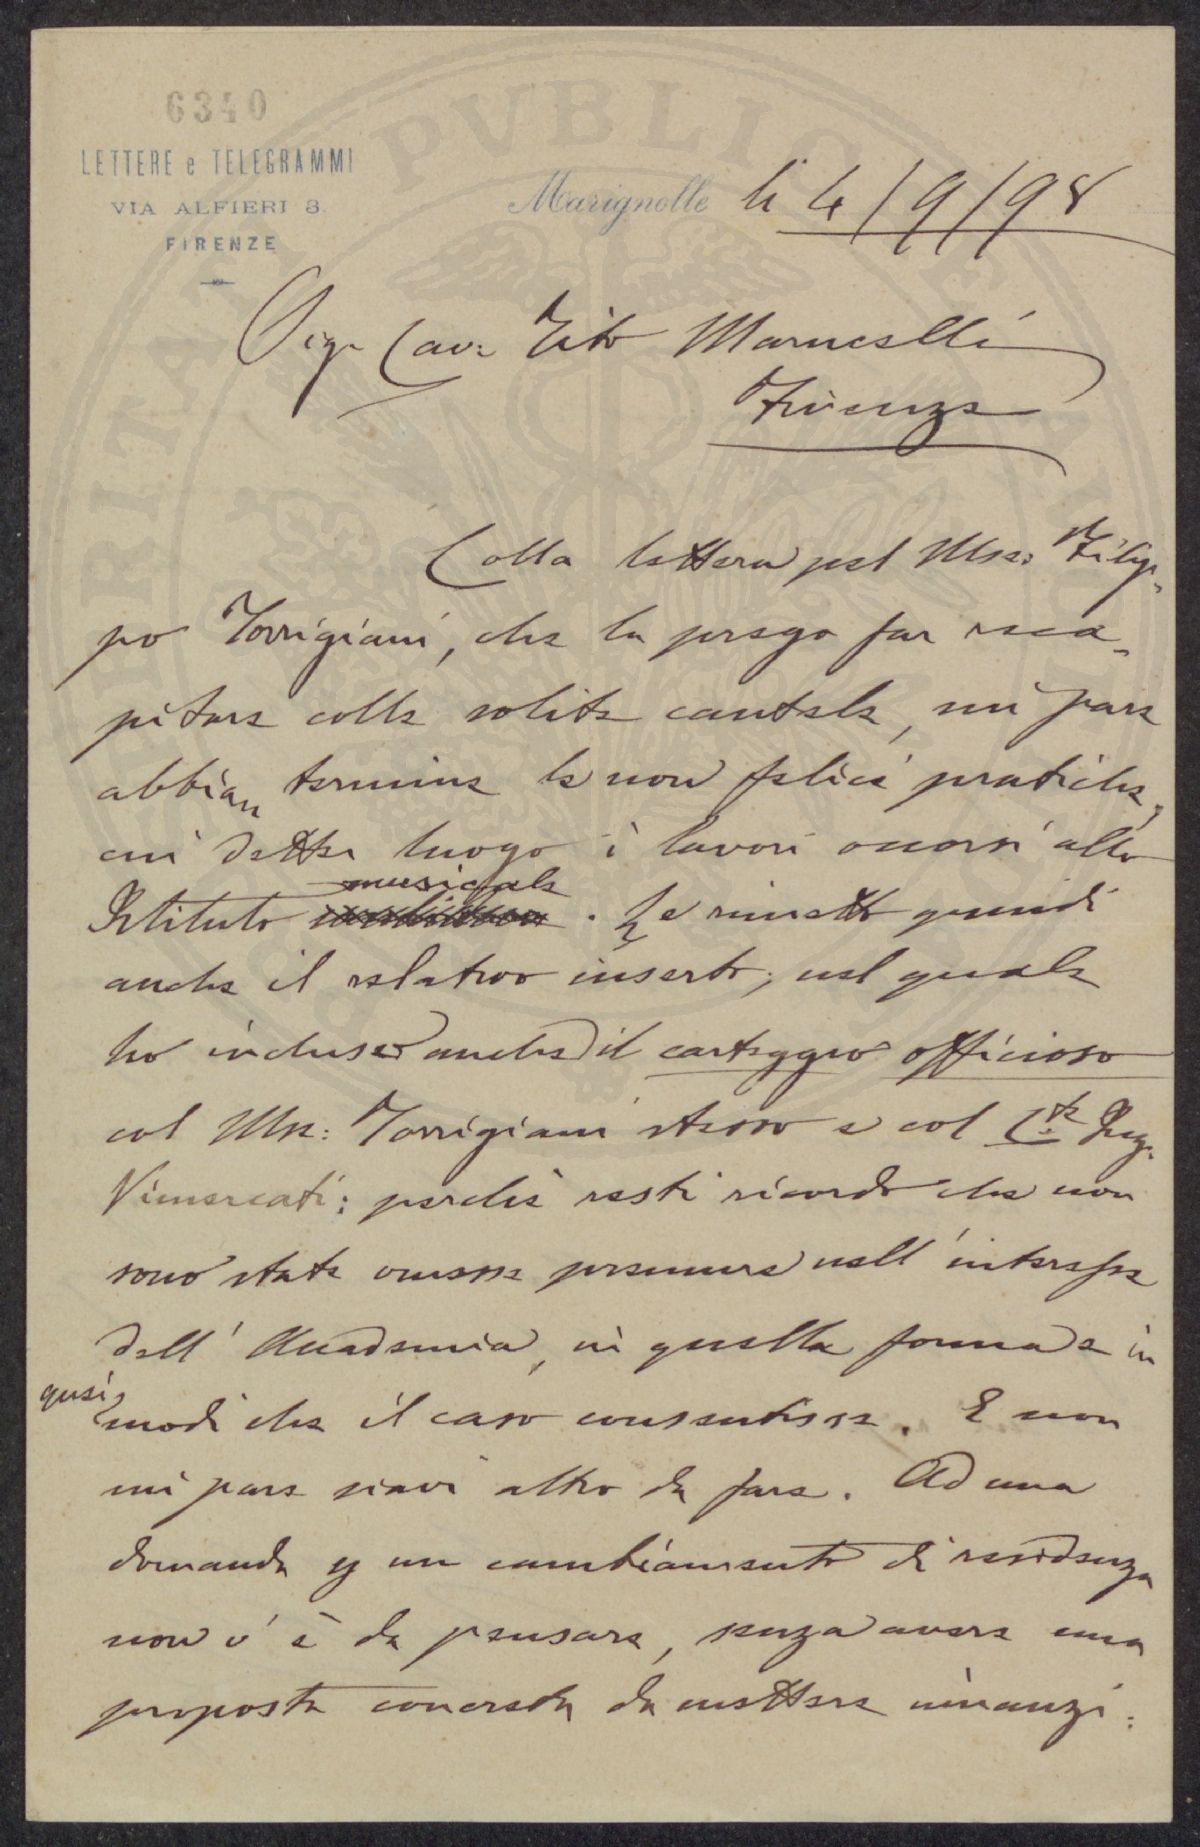 6340
LETTERE e TELEGRAMMI
VIA ALFIERI 3.
FIRENZE
Marignolle li 4/9/98
Sigr Cav: Tito Marucelli
Firenze
Colla lettera pel Mse: Filip-
po Torrigiani, che la prego far reca-
pitare colle solite cautele, mi pare
abbian termine le non felici pratiche,
cui dette luogo i lavori occorsi allo
Istituto musicale. Le rimetto quindi
anche il relativo inserto; nel quale
ho incluso anche il carteggio officioso
col Mse: Torrigiani stesso e col Cte Ing.
Vimercati: perchè resti ricordo che non
sono state omesse premure nell'interesse
dell'Accademia, in quella forma e in
quei modi che il caso consentisse. E non
mi pare siavi altro da fare. Ad una
domanda un cambiamento di residenza
non v'è da pensare, senza avere una
proposta concreta da mettere innanzi: